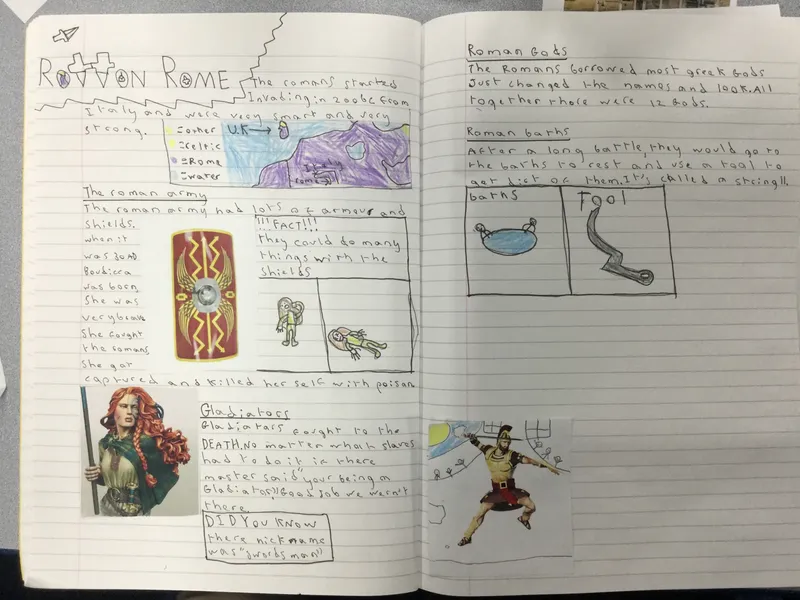 ROTTON ROME
The romans started
Invading in 200BC from
Italy and were very smart and very
strong.
=other
=celtic
=Rome
=water
U.K→
Italy
rome
The roman army
The roman army had lots of armour and
shields.
when it
was 30AD
Boudicca
was born
She was
very brave
She fought
the romans
She got
captured and killed her self with poison
!!!FACT!!!
they could do many
things with the
shields
Gladiators
Gladiators fought to the
DEATH.No matter what slaves
had to do it if there
master said"your being a
Gladiator"!Good Job we weren't
there.
DID YOU KNOW
there nickname
was "swords man"
Roman Gods
The Romans borrowed most greek Gods
Just changed the names and look.All
together there were 12 Gods.
Roman baths
After a long battle, they would go to
the baths to rest and use a tool to
get dirt of them.It's called a strigil.
baths
Tool